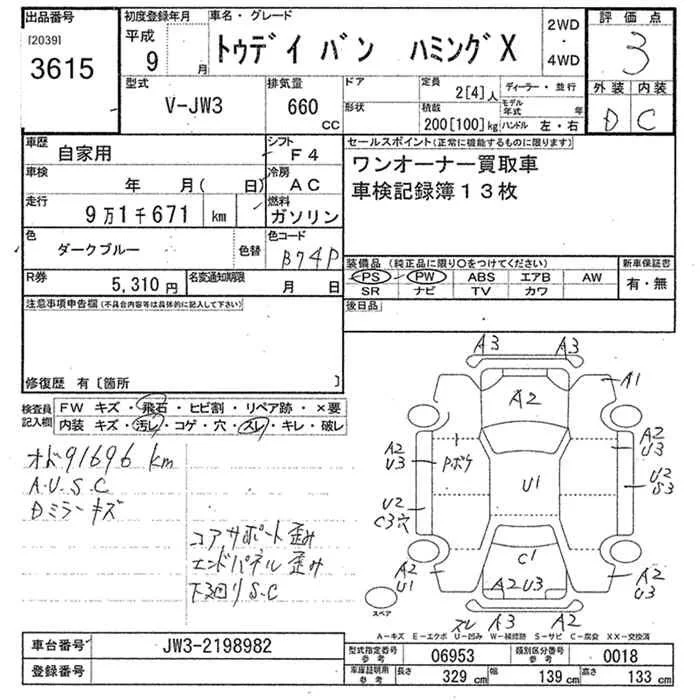 出品番号
[2039]
3615
初度登録年月
平成
9 月
車名・グレード
トゥデイ バン ハミングX
2WD
・
4WD
評価点
3
外装 内装
D C
型式
V-JW3
排気量
660
CC
ドア
形状
定員
2[4]人
積載
200[100]kg
ディーラー・並行
モデル年式 年
ハンドル 左・右
車歴
自家用
シフト
F4
車検
年 月( 日)
冷房
AC
走行
9万1千671 km
燃料
ガソリン
色
ダークブルー
色替
色コード
B74P
R券
5,310円
名変通知期限
月 日
セールスポイント(正常に機能するものに限ります)
ワンオーナー買取車
車検記録簿13枚
装備品(純正品に限り○をつけてください)
PS PW ABS エアB AW
SR ナビ TV カワ
新車保証書
有・無
後日品
注意事項申告欄(不具合内容等は具体的に記入して下さい)
修復歴 有〔箇所 〕
検査員
記入欄
FW キズ・飛石・ヒビ割・リペア跡・×要
内装 キズ・汚レ・コゲ・穴・スレ・キレ・破レ
オド91696km
A.U.S.C
Dミラーキズ
コアサポート歪み
エンドパネル歪み
下回りS.C
A3 A3
A2
A1
A2
U3
Pボケ
A2
U3
U1
U2
S3
U2
C3穴
C1
A2
U1
A2U3
A2
U3
スペア
スレ A3 A2
A-キズ E-エクボ U-凹み W-補修跡 S-サビ C-腐食 XX-交換済
車台番号
JW3-2198982
登録番号
型式指定番号
参考
06953
類別区分番号
参考
0018
車庫証明用
参考
長さ
329 cm
幅
139 cm
高さ
133 cm